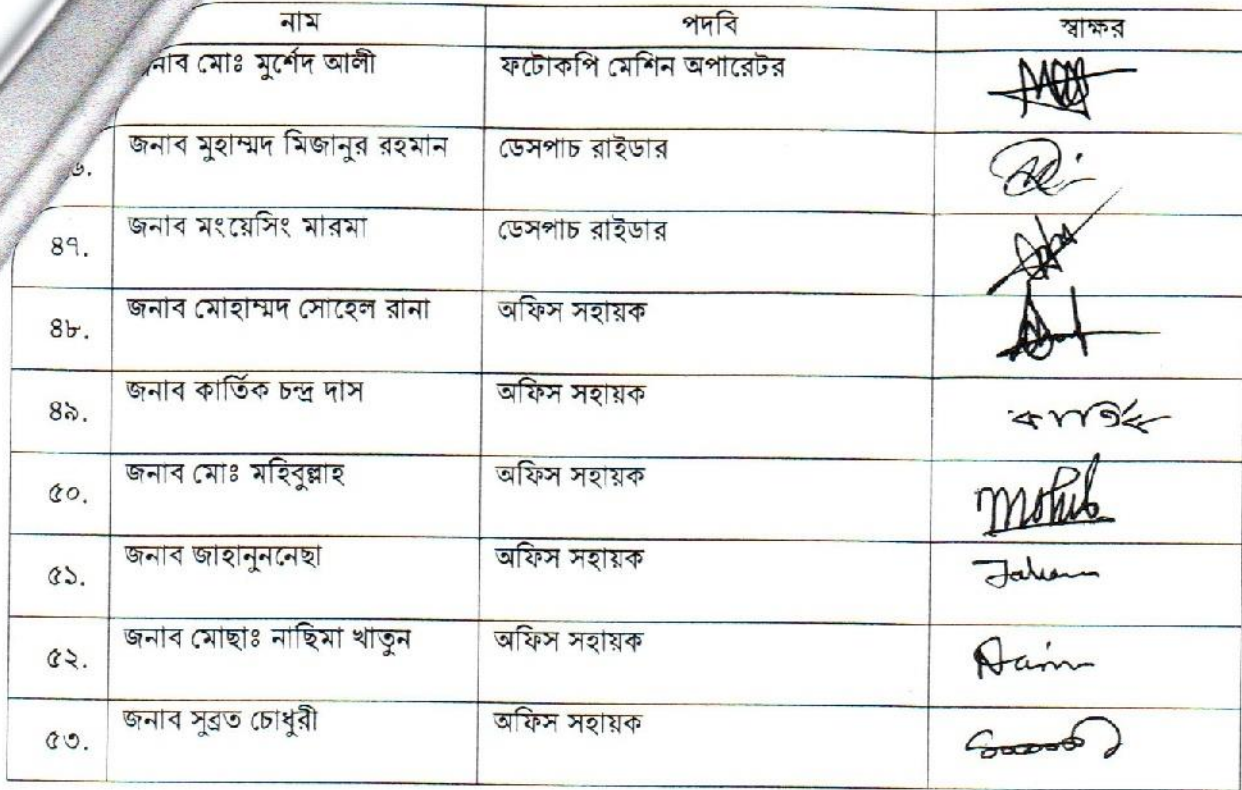 নাম পদবি স্বাক্ষর
জনাব মোঃ মুর্শেদ আলী ফটোকপি মেশিন অপারেটর
৬. জনাব মুহাম্মদ মিজানুর রহমান ডেসপাচ রাইডার
৪৭. জনাব মংয়েসিং মারমা ডেসপাচ রাইডার
৪৮. জনাব মোহাম্মদ সোহেল রানা অফিস সহায়ক
৪৯. জনাব কার্তিক চন্দ্র দাস অফিস সহায়ক
৫০. জনাব মোঃ মহিবুল্লাহ অফিস সহায়ক Mohib
৫১. জনাব জাহানুননেছা অফিস সহায়ক
৫২. জনাব মোছাঃ নাছিমা খাতুন অফিস সহায়ক
৫৩. জনাব সুব্রত চৌধুরী অফিস সহায়ক